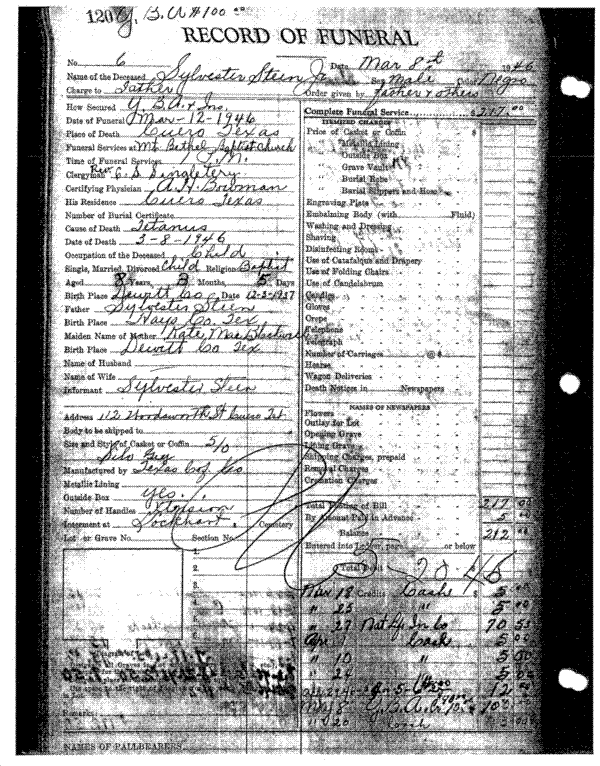 120 Y. B. A #100 00
RECORD OF FUNERAL
No. 6 Date Mar 8 1946
Name of the Deceased Sylvester Steen Jr. Sex Male Color Negro
Charge to Father Order given by Father & others
How Secured Y.B.A. & Ins.
Date of Funeral Mar-12-1946
Place of Death Cuero Texas
Funeral Services at Mt. Bethel Baptist Church
Time of Funeral Services 1 P.M.
Clergyman Rev. Singletery
Certifying Physician A. H. Bowman
His Residence Cuero Texas
Number of Burial Certificate
Cause of Death Tetanus
Date of Death 3-8-1946
Occupation of the Deceased Child
Single, Married, Divorced Child Religion Baptist
Aged 8 Years, 3 Months, 5 Days
Birth Place Dewitt Co Date 12-3-1937
Father Sylvester Steen
Birth Place Hays Co. Tex
Maiden Name of Mother Kate Mae
Birth Place Dewitt Co Tex
Name of Husband
Name of Wife
Informant Sylvester Steen
Address 112 Woodsworth St Cuero Tex.
Body to be shipped to
Size and Style of Casket or Coffin 5/0
Silv Gray
Manufactured by Texas Cof. Co
Metallic Lining
Outside Box Yes.
Number of Handles
Interment at Lockhart. Cemetery
Lot or Grave No. Section No.
1.
2.
3.
4.
5.
Remarks
NAMES OF PALLBEARERS
Complete Funeral Service $ 217.00
ITEMIZED CHARGES
Price of Casket or Coffin $
" Metallic Lining
" Outside Box
" Grave Vault
" Burial Robe
" Burial Slippers and Hose
Engraving Plate
Embalming Body (with Fluid)
Washing and Dressing
Shaving
Disinfecting Room
Use of Catafalque and Drapery
Use of Folding Chairs
Use of Candelabrum
Candles
Gloves
Crepe
Telephone
Telegraph
Number of Carriages @ $
Hearse
Wagon Deliveries
Death Notices in Newspapers
NAMES OF NEWSPAPERS
Flowers
Outlay for Lot
Opening Grave
Lining Grave
Shipping Charges, prepaid
Removal Charges
Cremation Charges
Total Footing of Bill 217 00
By Amount Paid in Advance 5 00
Balance 212 00
Entered into Ledger, page or below
Total
Mar 18 Credits Cash $ 5 00
" 25 " 5 00
" 27 Nat Ins Co 70 50
Apr Cash 5 00
" 10 " 5 00
" 24 " 5 00
12 00
Y. B. A. 100 00
" 20 Cash